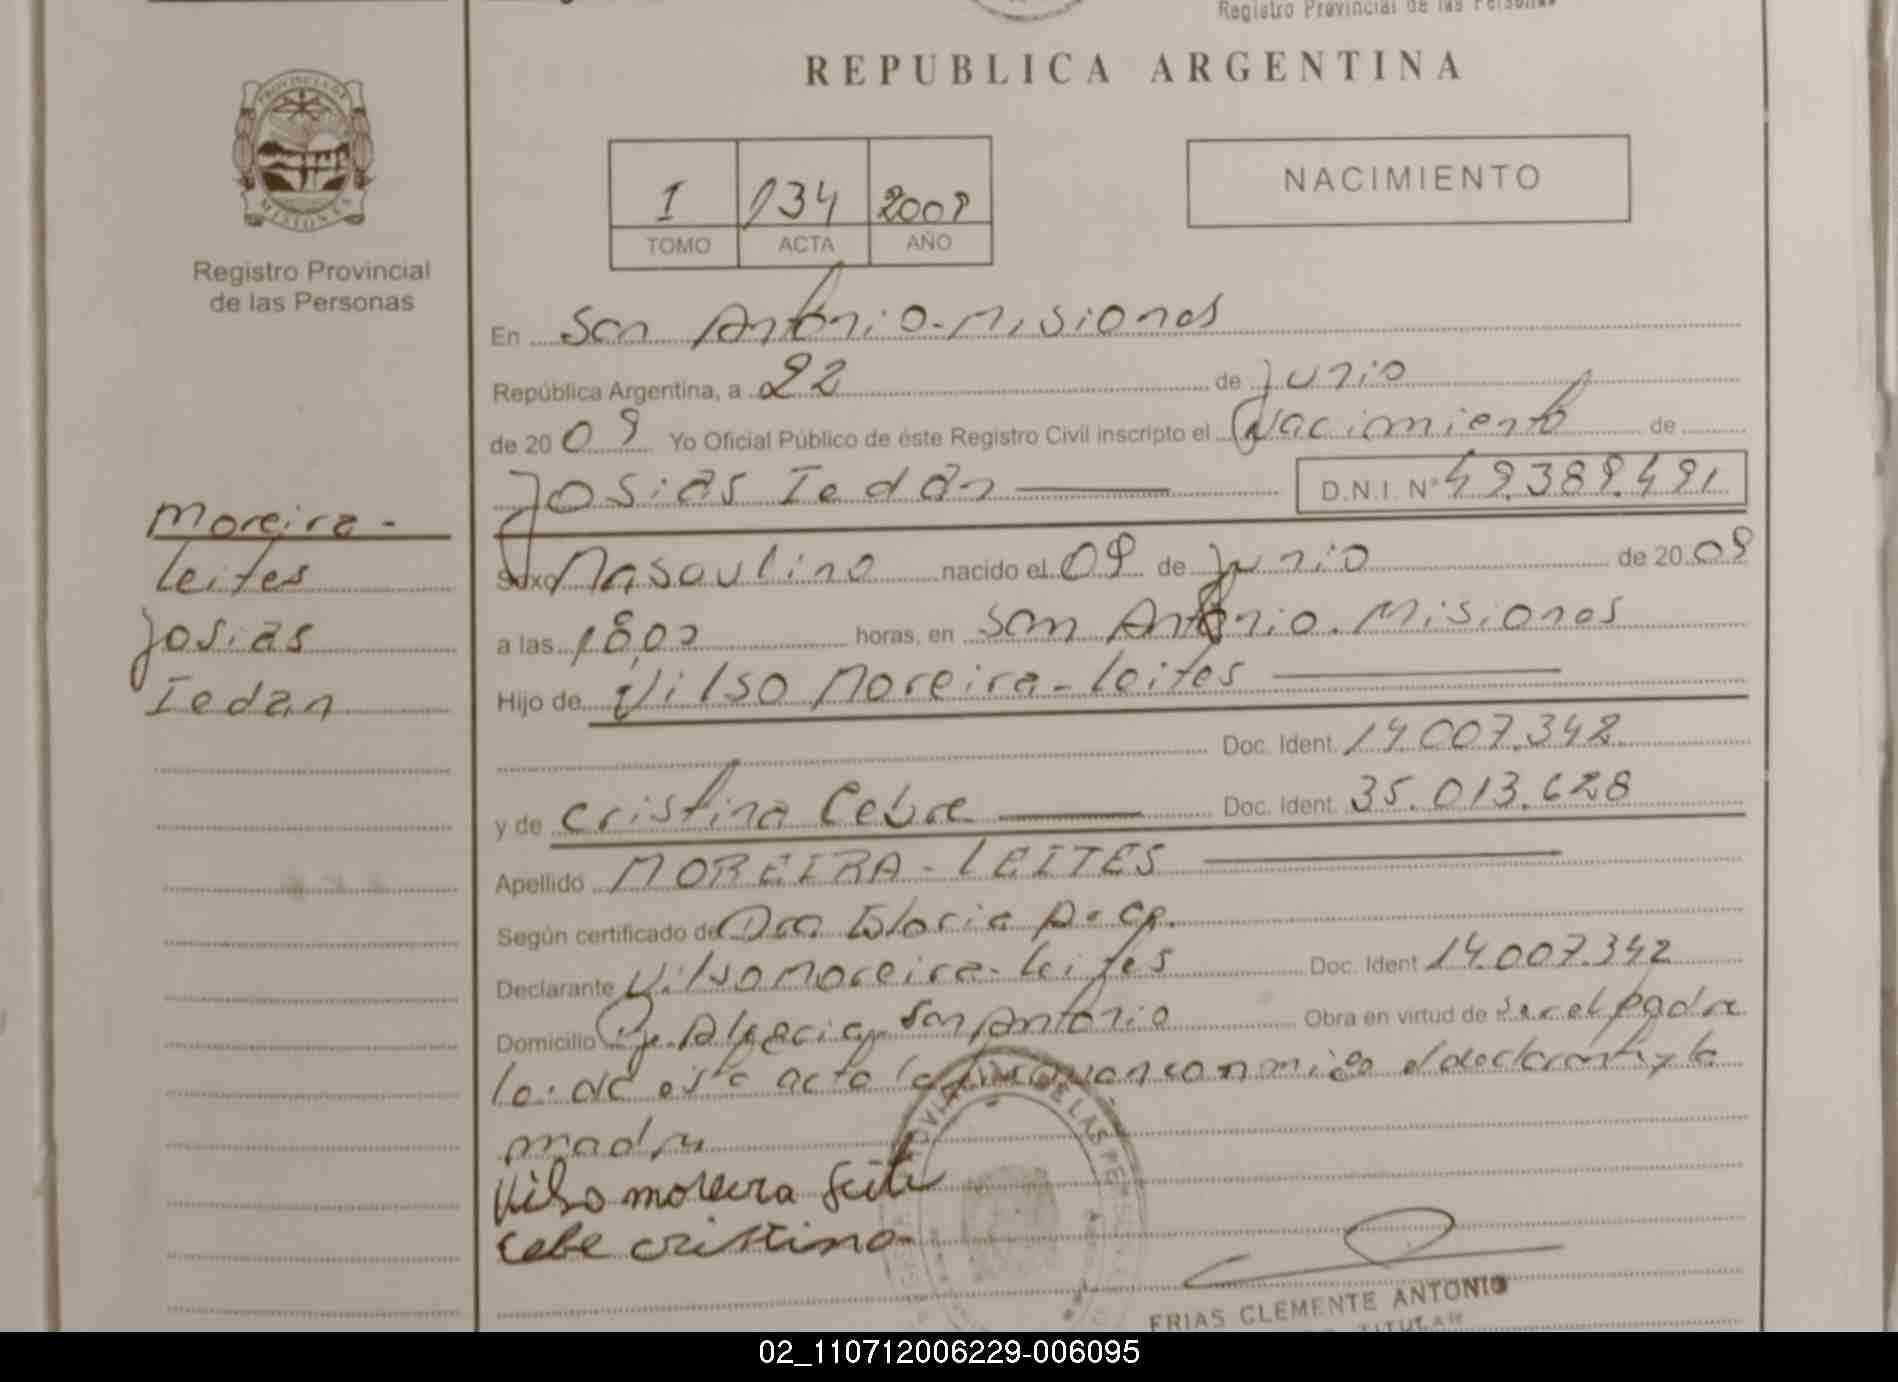 Registro Provincial de las Personas
REPUBLICA ARGENTINA
PROVINCIA DE
MISIONES
Registro Provincial
de las Personas
1 134 2009
TOMO ACTA AÑO
NACIMIENTO
En San Antonio - Misiones
República Argentina, a 22 de Junio
de 2009 Yo Oficial Público de éste Registro Civil inscripto el Nacimiento de
Josias Iedan D.N.I. Nº 49.389.491
Moreira -
Leites
Josias
Iedan
Sexo Masculino nacido el 09 de Junio de 2009
a las 18,02 horas, en San Antonio. Misiones
Hijo de Vilso Moreira - Leites
Doc. Ident. 14.007.342
y de Cristina Cebre Doc. Ident. 35.013.628
Apellido MOREIRA - LEITES
Según certificado de Dra Gloria
Declarante Vilso Moreira - Leites Doc. Ident 14.007.342
Domicilio San Antonio Obra en virtud de ser el padre
lo. de esta acta la firman conmigo el declarante y la
madre
Vilso moreira Leite
cebe cristina
FRIAS CLEMENTE ANTONIO
TITULAR
02_110712006229-006095